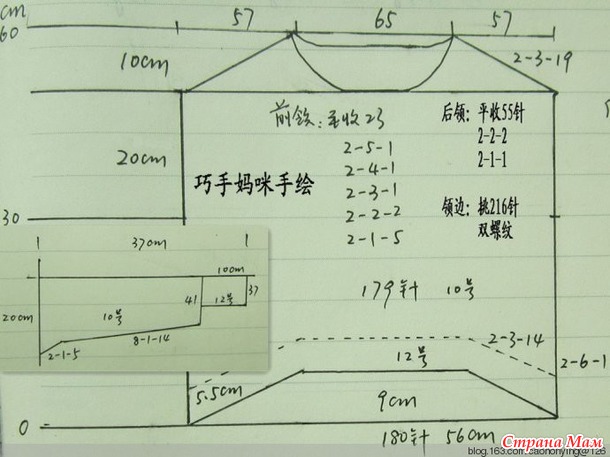 cm
60
57
65
57
10cm
2-3-19
前领：平收23
2-5-1
2-4-1
2-3-1
2-2-2
2-1-5
后领：平收55针
2-2-2
2-1-1
20cm
巧手妈咪手绘
领边：挑216针
双螺纹
30
37cm
10cm
20cm
41
12号
37
10号
8-1-14
2-1-5
179针 10号
2-3-14
2-6-1
12号
5.5cm
9cm
0
180针 56cm
Страна Мам
blog.163.com/caohongying@126